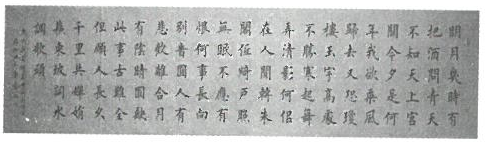 明月幾時有
把酒問青天
不知天上宮
闕今夕是何
年我欲乘風
歸去又恐瓊
樓玉宇高處
不勝寒起舞
弄清影何佀
在人間轉朱
閣低綺戶照
無眠不應有
恨何事長向
別時圓人有
悲歡離合月
有陰晴圓缺
此事古難全
但願人長久
千里共嬋娟
東坡詞水
調歌頭